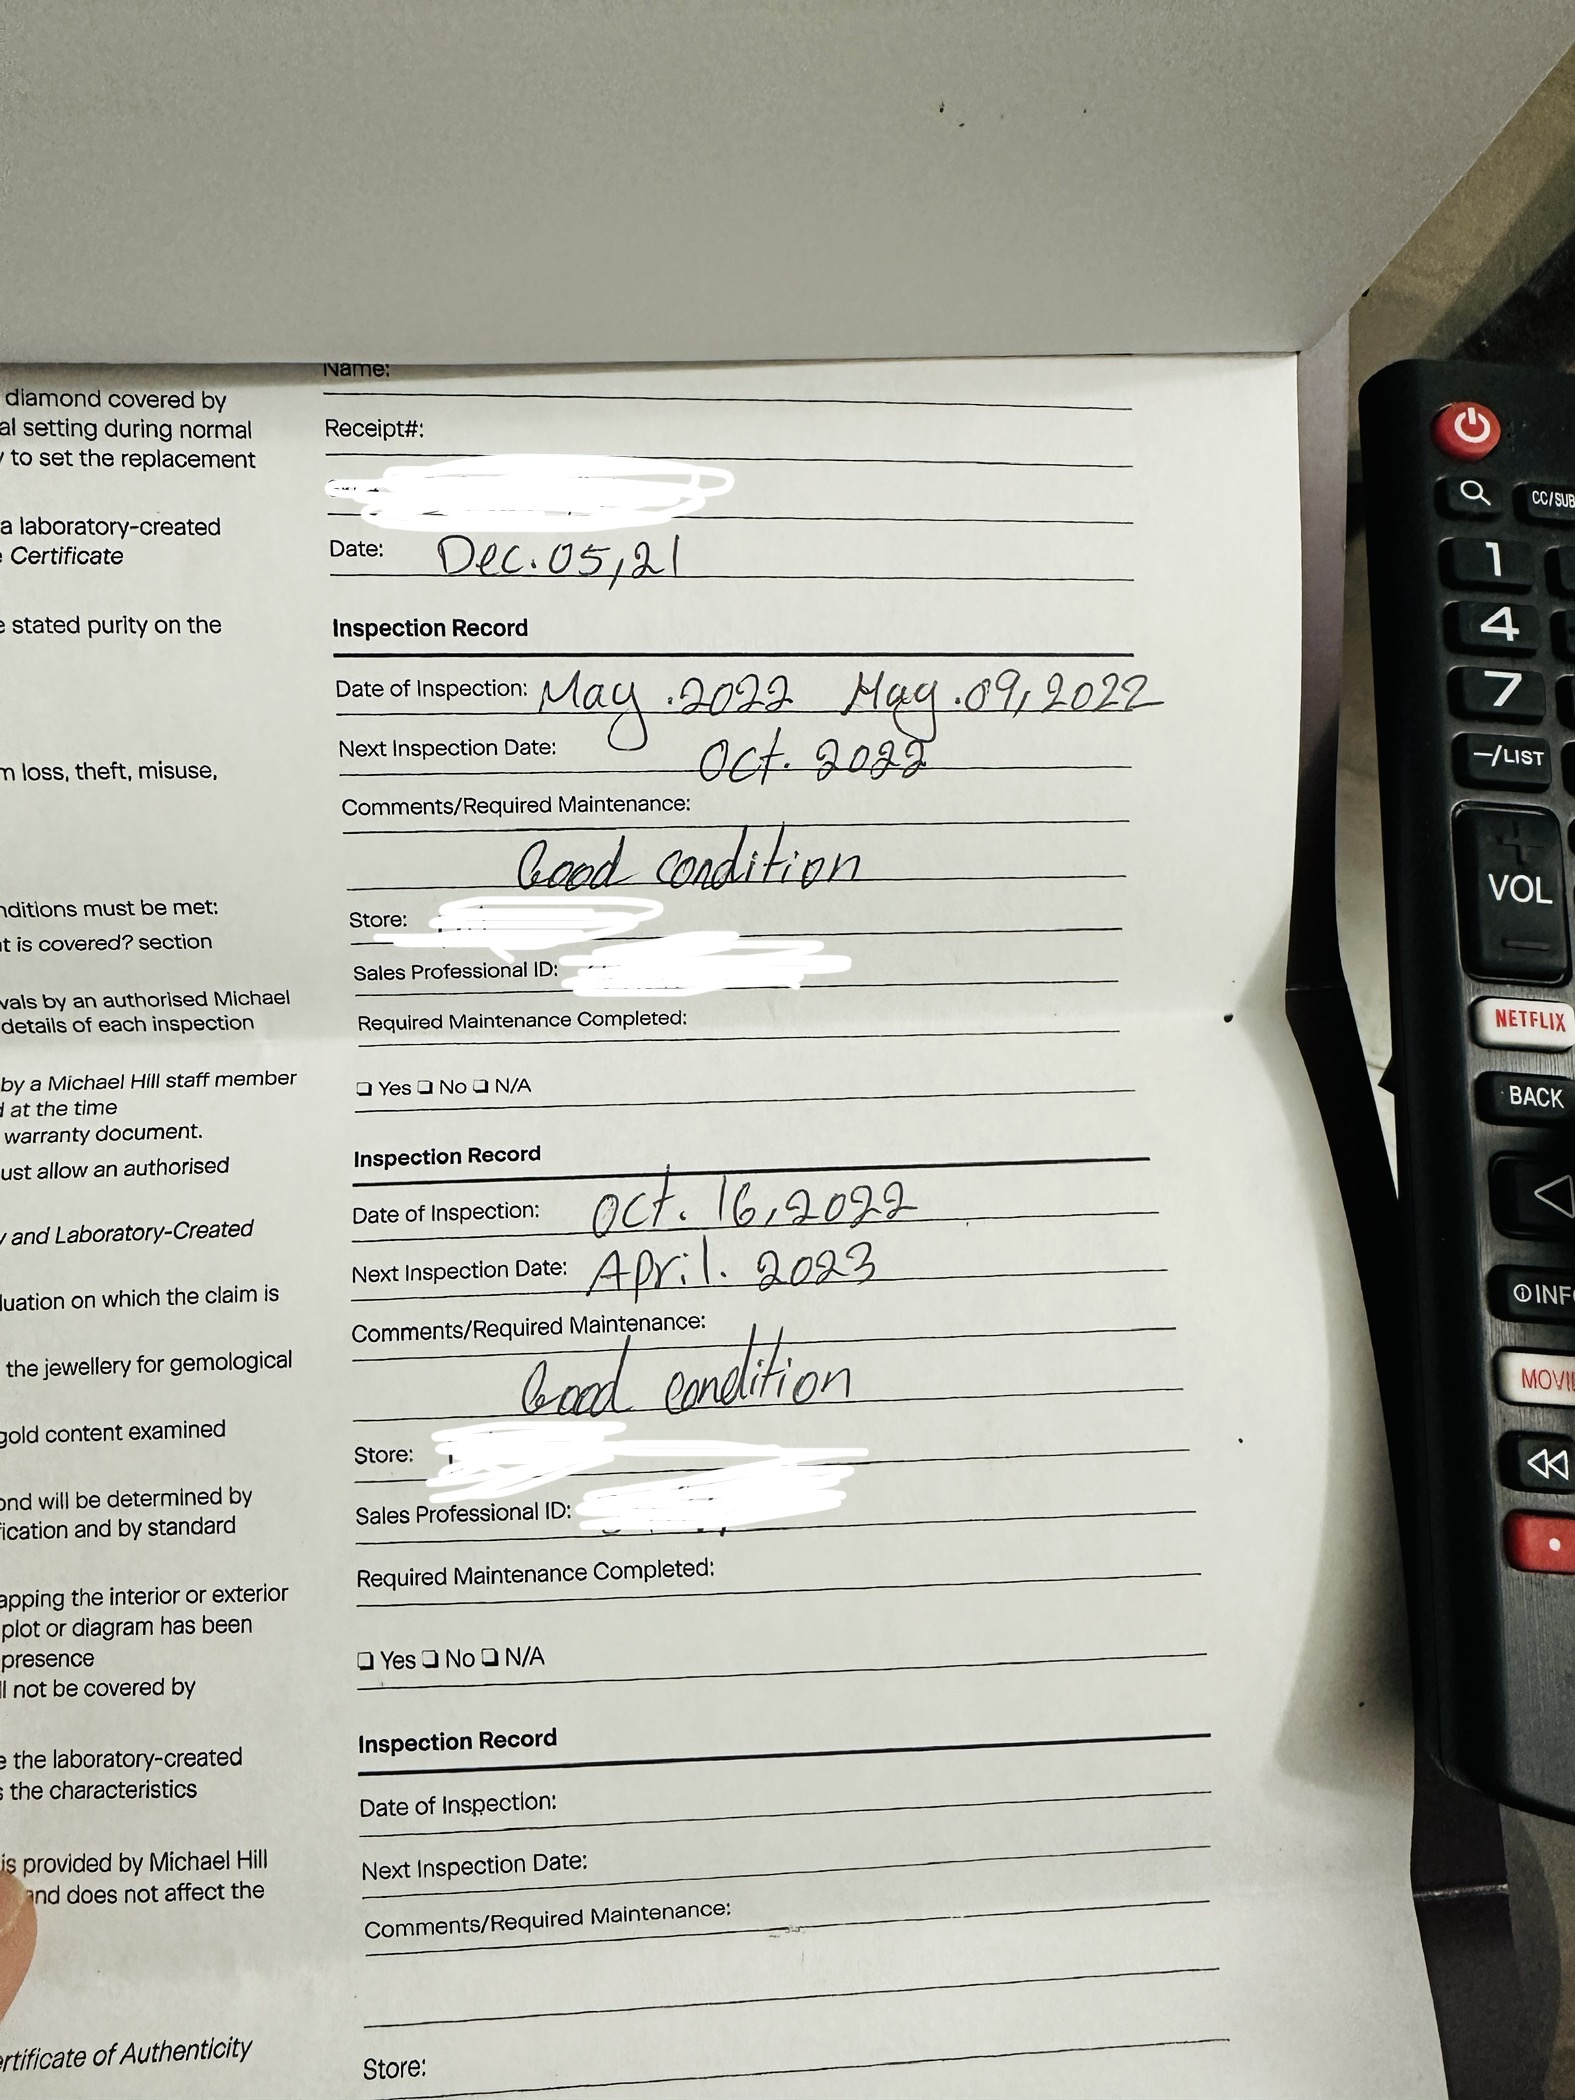 Name:
Receipt#:
Date: Dec. 05, 21
Inspection Record
Date of Inspection: May . 2022 May . 09, 2022
Next Inspection Date: Oct. 2022
Comments/Required Maintenance:
Good condition
Store:
Sales Professional ID:
Required Maintenance Completed:
❑ Yes ❑ No ❑ N/A
Inspection Record
Date of Inspection: Oct. 16, 2022
Next Inspection Date: April. 2023
Comments/Required Maintenance:
Good condition
Store:
Sales Professional ID:
Required Maintenance Completed:
❑ Yes ❑ No ❑ N/A
Inspection Record
Date of Inspection:
Next Inspection Date:
Comments/Required Maintenance:
Store:
diamond covered by
setting during normal
to set the replacement
a laboratory-created
Certificate
stated purity on the
loss, theft, misuse,
must be met:
is covered? section
by an authorised Michael
details of each inspection
by a Michael Hill staff member
at the time
warranty document.
allow an authorised
and Laboratory-Created
on which the claim is
the jewellery for gemological
gold content examined
will be determined by
and by standard
the interior or exterior
plot or diagram has been
presence
not be covered by
the laboratory-created
the characteristics
is provided by Michael Hill
and does not affect the
of Authenticity
CC/SUB
1
4
7
–/LIST
+
VOL
–
NETFLIX
BACK
INFO